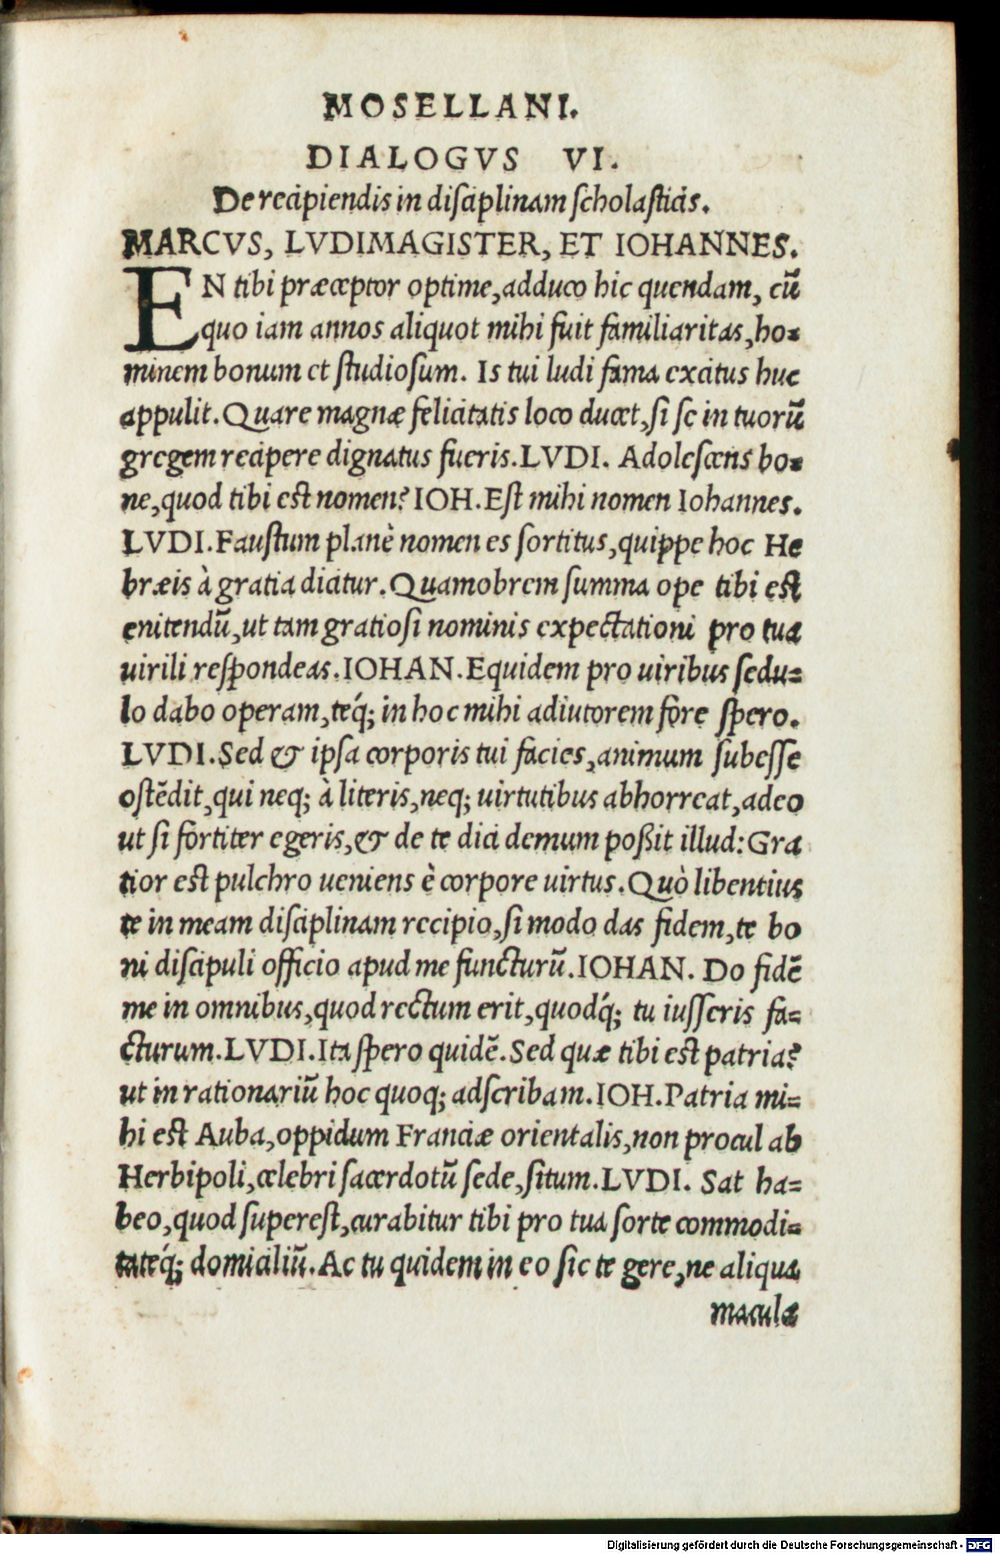 MOSELLANI.
DIALOGVS VI.
De recipiendis in disciplinam scholasticis.
MARCVS, LVDIMAGISTER, ET IOHANNES.
EN tibi præceptor optime, adduco hic quendam, cū
quo iam annos aliquot mihi fuit familiaritas, ho-
minem bonum et studiosum. Is tui ludi fama excitus huc
appulit. Quare magnæ felicitatis loco ducet, si se in tuorū
gregem recipere dignatus fueris. LVDI. Adolescens bo-
ne, quod tibi est nomen? IOH. Est mihi nomen Iohannes.
LVDI. Faustum planè nomen es sortitus, quippe hoc He
bræis à gratia dicitur. Quamobrem summa ope tibi est
enitendū, ut tam gratiosi nominis expectationi pro tua
uirili respondeas. IOHAN. Equidem pro uiribus sedu-
lo dabo operam, teq́; in hoc mihi adiutorem fore spero.
LVDI. Sed & ipsa corporis tui facies, animum subesse
ostēdit, qui neq; à literis, neq; uirtutibus abhorreat, adeo
ut si fortiter egeris, & de te dici demum poßit illud: Gra
tior est pulchro ueniens è corpore uirtus. Quò libentius
te in meam disciplinam recipio, si modo das fidem, te bo
ni discipuli officio apud me functurū. IOHAN. Do fidē
me in omnibus, quod rectum erit, quodq́; tu iusseris fa-
cturum. LVDI. Ita spero quidē. Sed quæ tibi est patria?
ut in rationariū hoc quoq; adscribam. IOH. Patria mi-
hi est Auba, oppidum Franciæ orientalis, non procul ab
Herbipoli, celebri sacerdotū sede, situm. LVDI. Sat ha-
beo, quod superest, curabitur tibi pro tua sorte commodi-
tateq́; domiciliū. Ac tu quidem in eo sic te gere, ne aliqua
macula
Digitalisierung gefördert durch die Deutsche Forschungsgemeinschaft - DFG